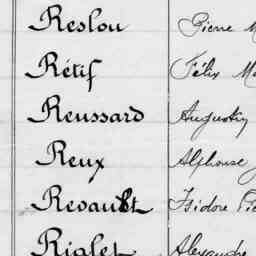 Reslou Pierre M
Rétif Félix Ma
Reussard Augustin
Reux Alphonse
Revault Isidore Pie
Rialet Alexandre